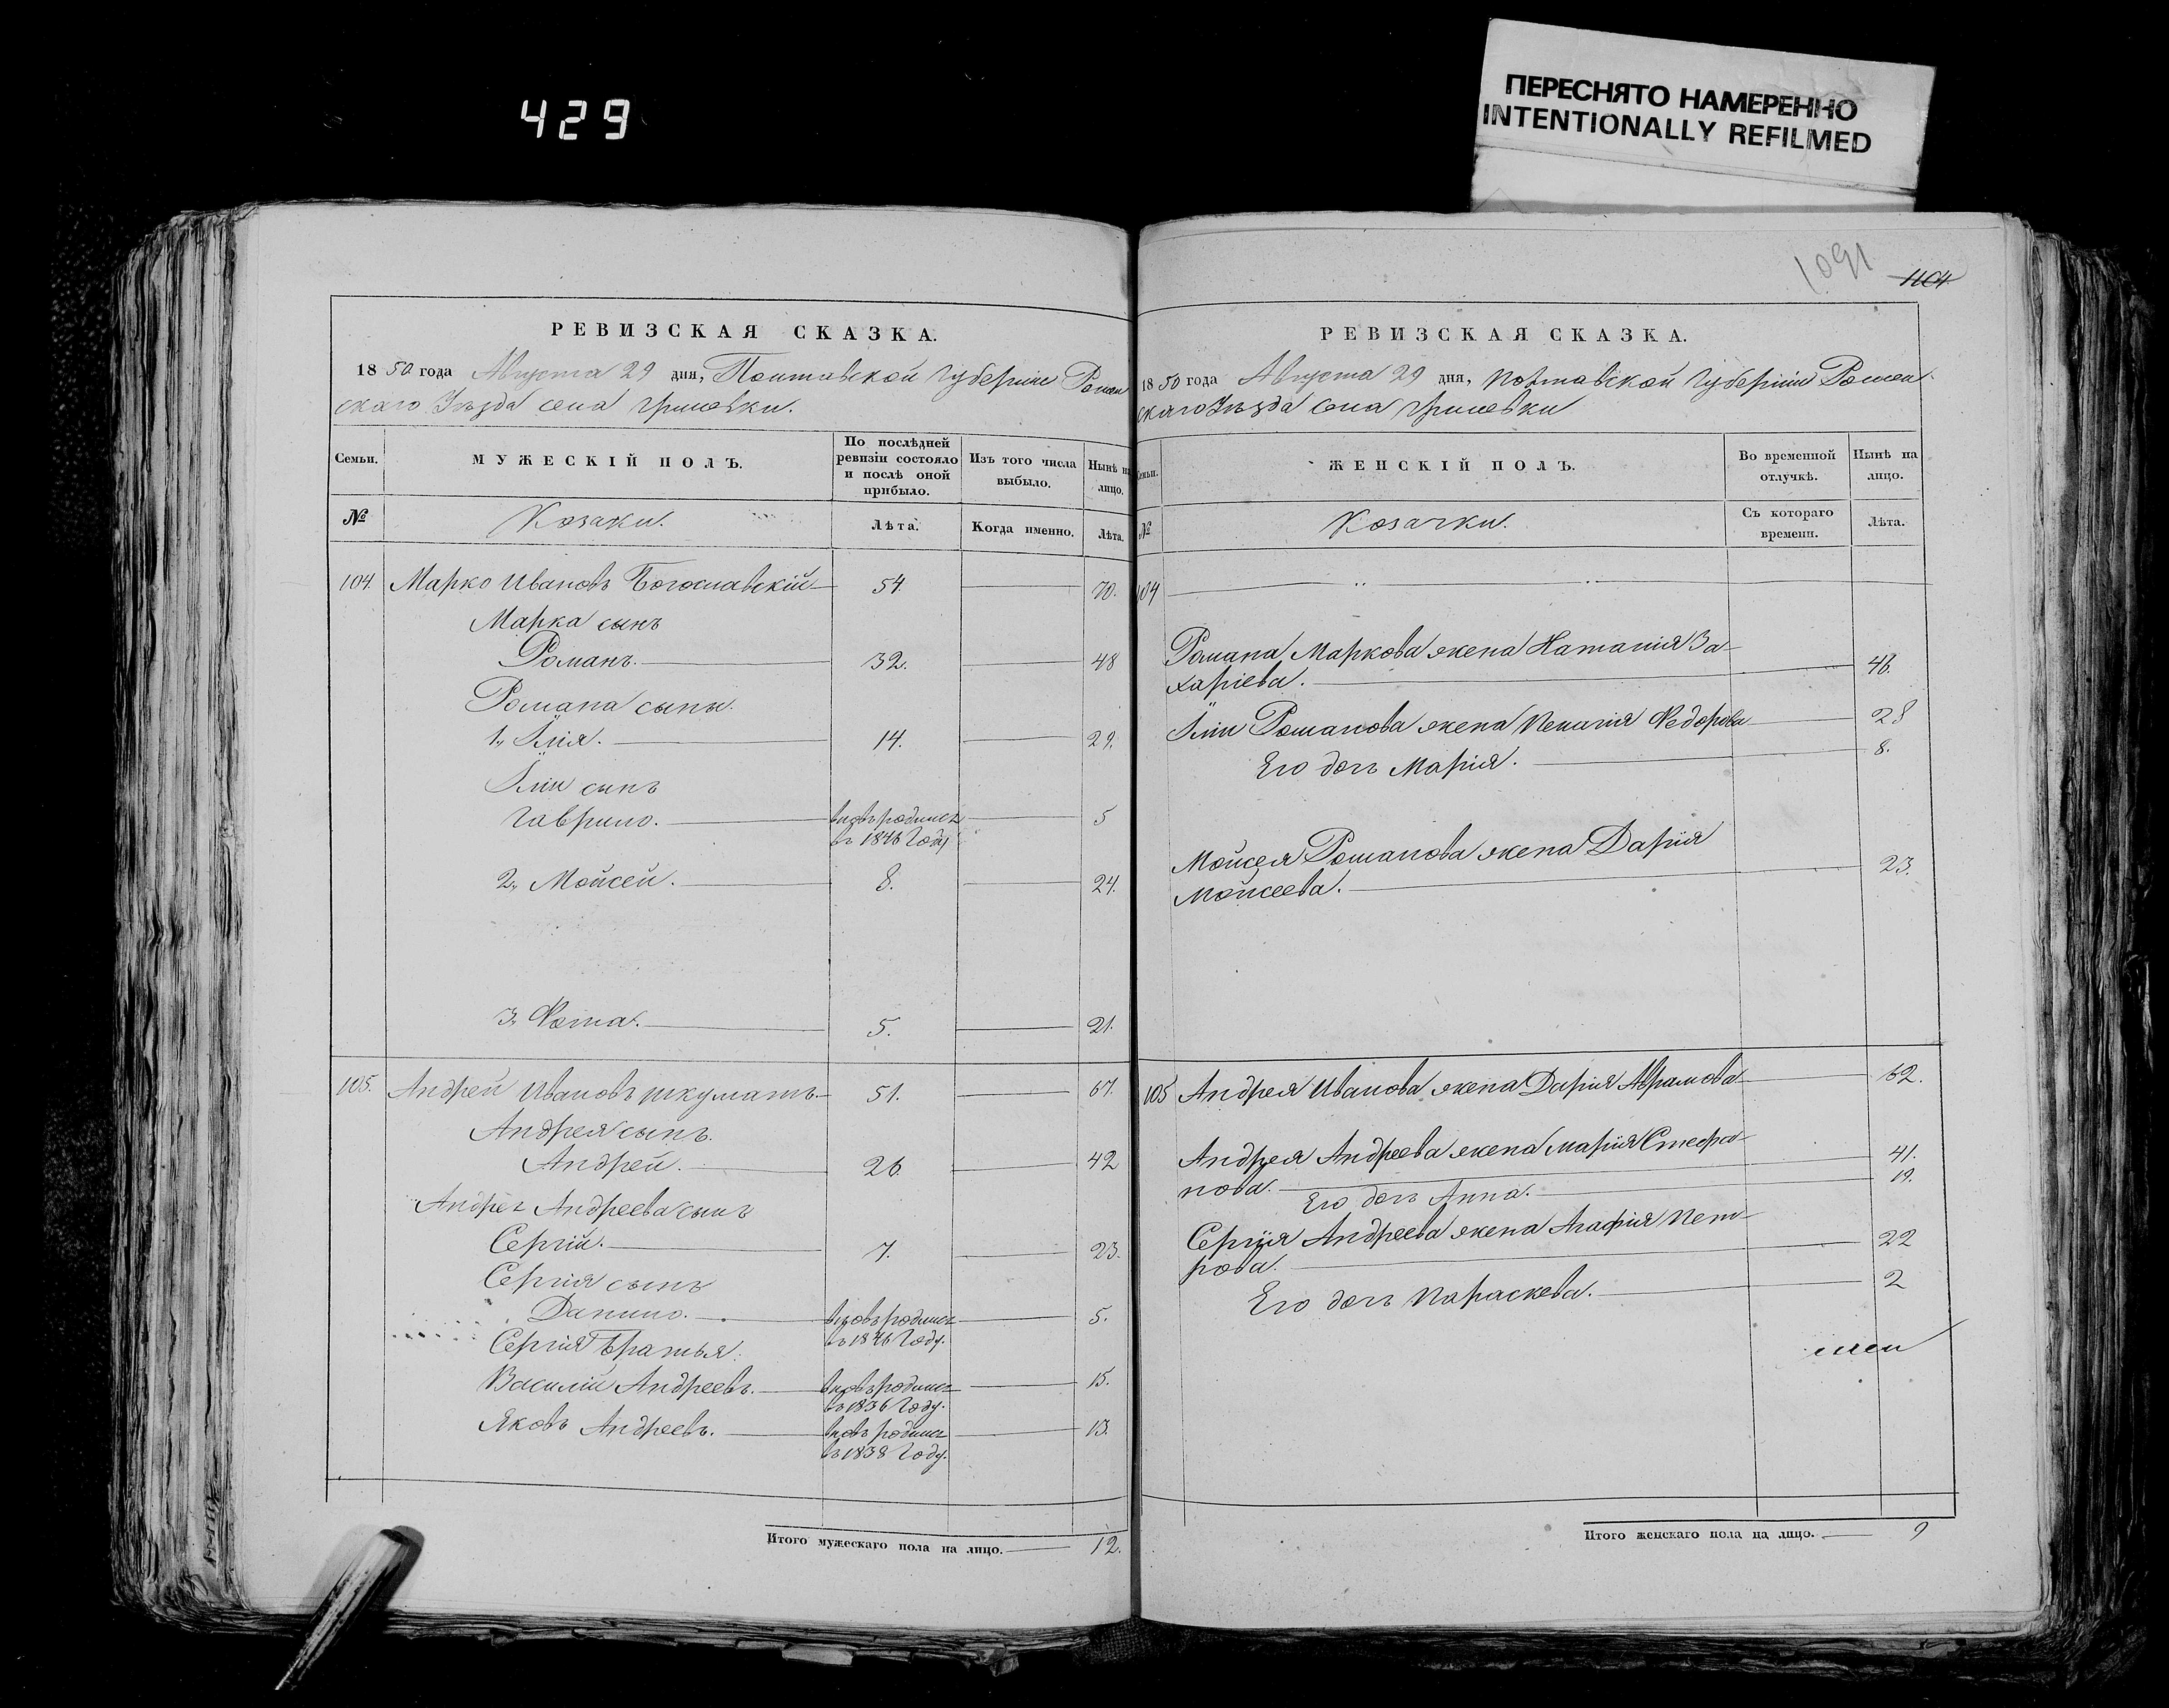 429
ПЕРЕСНЯТО НАМЕРЕННО
INTENTIONALLY REFILMED
РЕВИЗСКАЯ СКАЗКА.
1850 года Августа 29 дня, Полтавской Губерніи Ромен
скаго Уѣзда села Гриневки.
Семьи.
МУЖЕСКІЙ ПОЛЪ.
По послѣдней ревизіи состояло и послѣ оной прибыло.
Изъ того числа выбыло.
Нынѣ на лицо.
№
Козаки.
Лѣта.
Когда именно.
Лѣта.
104. Марко Ивановъ Богославскій 54. 70.
Марка сынъ
Романъ. 32. 48
Романа сыны.
1, Илія. 14. 29.
Иліи сынъ
Гаврило. вновь родился 5
въ 1846 Году
2, Мойсей. 8. 24.
3, Фома. 5. 21.
105. Андрей Ивановъ Шкуматъ 51. 67.
Андрея сынъ.
Андрей. 26. 42
Андрея Андреева сынъ
Сергій. 7. 23.
Сергія сынъ
Данило. вновь родился 5.
въ 1846 Году.
Сергія братья.
Василій Андреевъ. вновь родился 15.
въ 1836 Году.
Яковъ Андреевъ. вновь родился 13.
въ 1838 Году.
Итого мужескаго пола на лицо. 12.
1091
1104
РЕВИЗСКАЯ СКАЗКА.
1850 года Августа 29 дня, Полтавской Губерніи Ромен
скаго Уѣзда села Гриневки
Семьи.
ЖЕНСКІЙ ПОЛЪ.
Во временной отлучкѣ.
Нынѣ на лицо.
№
Козачки.
Съ котораго времени.
Лѣта.
104
Романа Маркова жена Наталія За-
харіева. 46.
Иліи Романова жена Пелагія Федорова 28
Его дочь Марія. 8.
Мойсея Романова жена Дарія
Мойсеева. 23.
105 Андрея Иванова жена Дарія Абрамова 62.
Андрея Андреева жена Марія Стефа-
нова. 41.
Его дочь Анна. 19.
Сергія Андреева жена Агафія Пет-
рова. 22
Его дочь Параскева. 2
Итого женскаго пола на лицо. 9